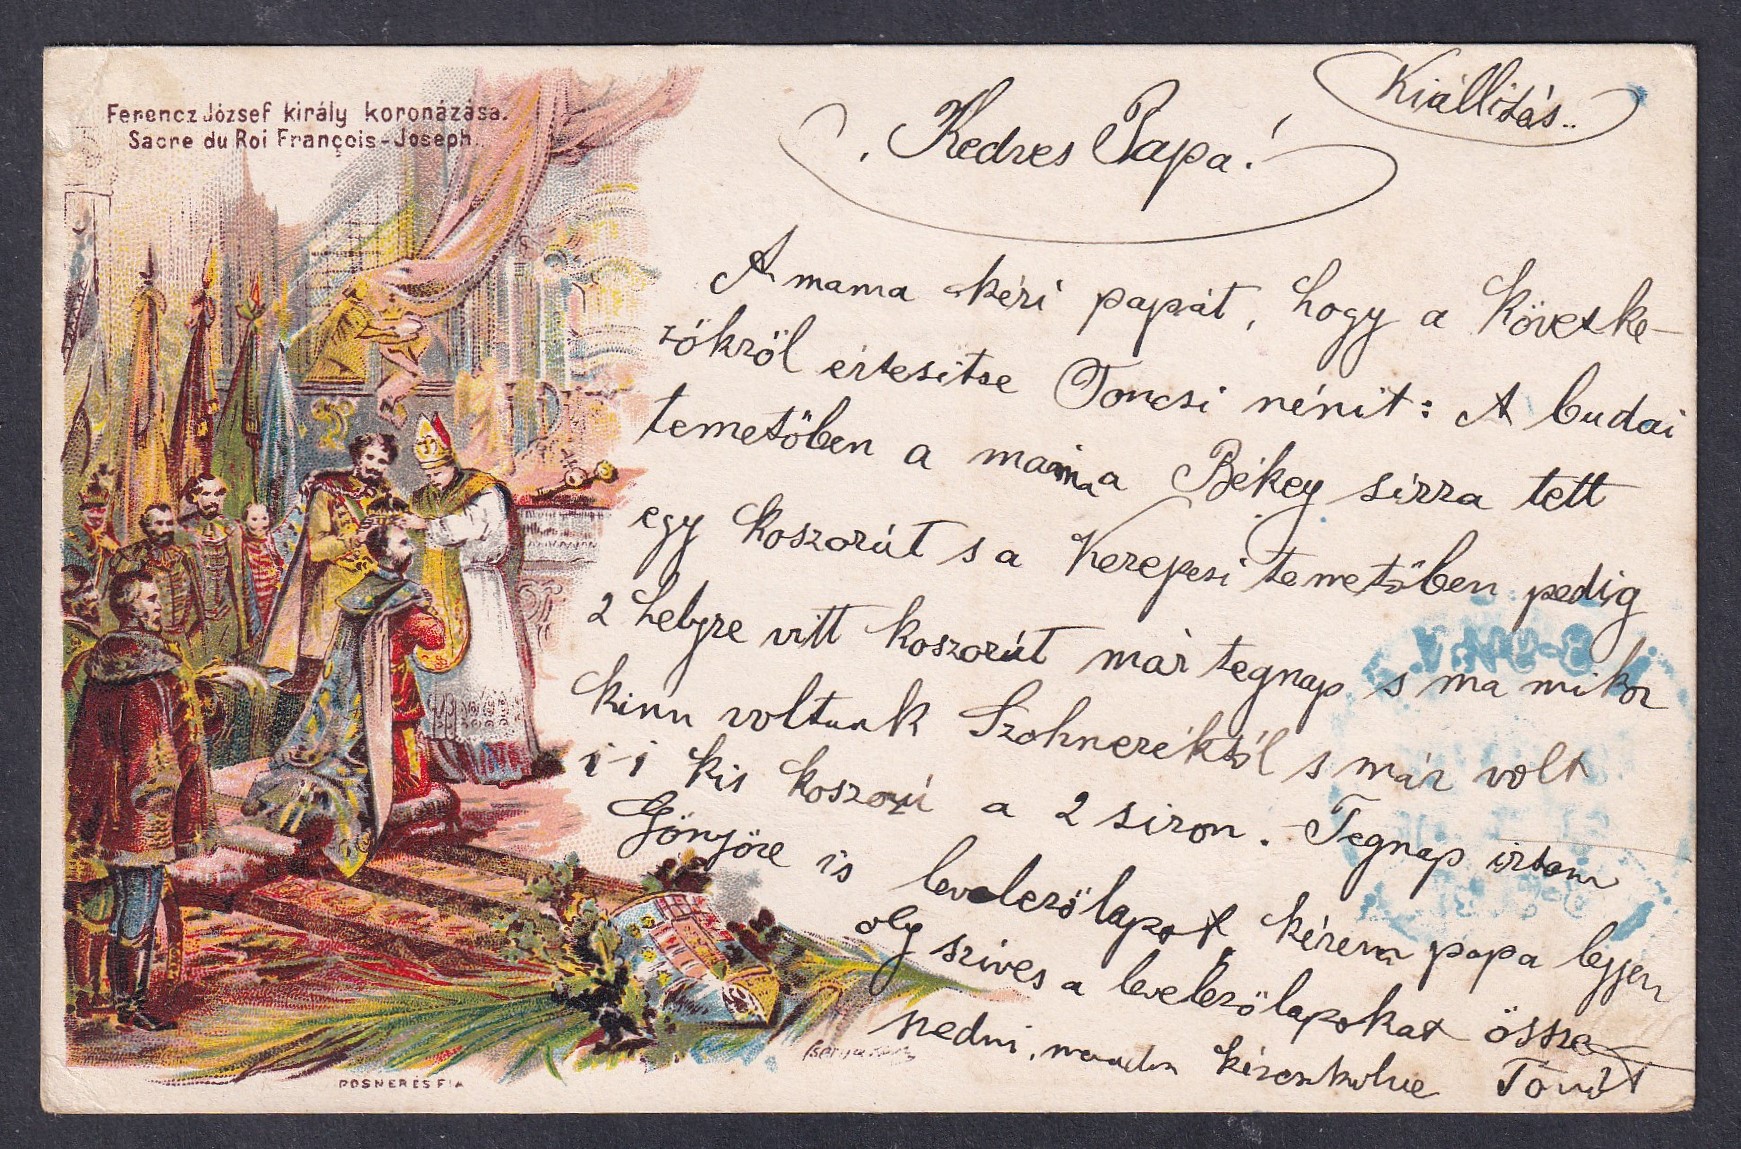 Ferencz József király koronázása.
Sacre du Roi François-Joseph.
Kiállitás..
Kedves Papa!
A mama kéri papát, hogy a követke-
zőkről értesitse Toncsi nénit: A budai
temetőben a mama Békey sirra tett
egy koszorút s a Kerepesi temetőben pedig
2 helyre vitt koszorút már tegnap s ma mikor
kinn voltunk Szohneréktől s már volt
1-1 kis koszorú a 2 siron. Tegnap irtam
is levelezőlapot, kérem papa legyen
oly szives a levelezőlapokat össze
szedni, kézcsókolva
POSNER ÉS FIA